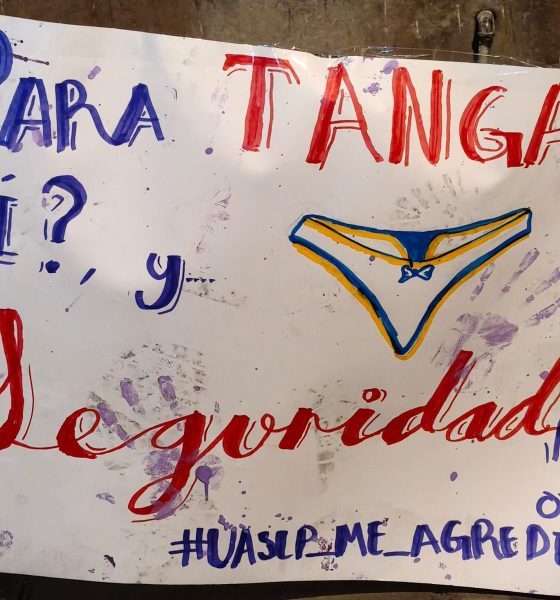 PARA TANGA
Í?, y...
Seguridad
#UASLP_ME_AGREDI